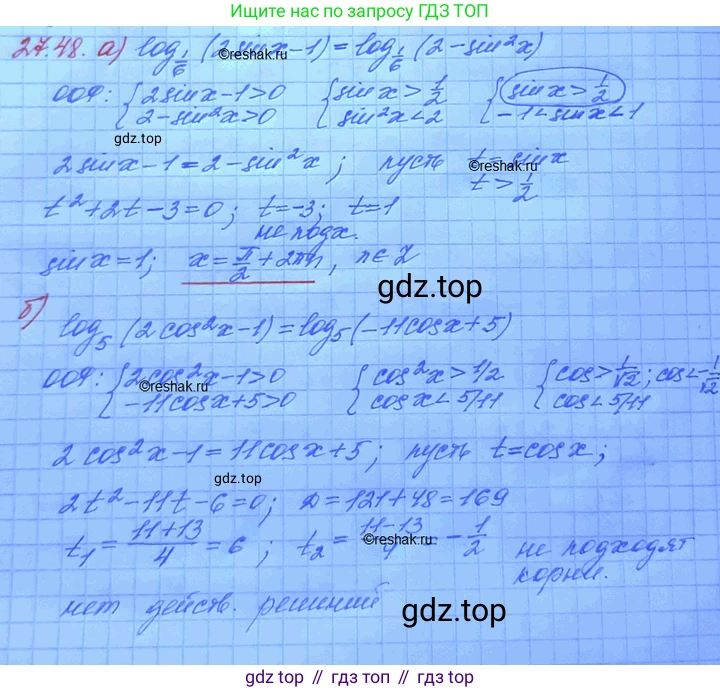 Ищите нас по запросу ГДЗ ТОП
27.48. а) log_{1/6} (2sinx-1) = log_{1/6} (2-sin²x)
©reshak.ru
ООФ: { 2sinx-1>0 { sinx>1/2 { sinx>1/2
2-sin²x>0 sin²x<2 -1<sinx<1
gdz.top
2sinx-1=2-sin²x; пусть t=sinx
©reshak.ru
t>1/2
t²+2t-3=0; t=-3; t=1
не подх.
sinx=1; x=π/2+2πn, n∈Z
gdz.top
б) log₅(2cos²x-1)=log₅(-11cosx+5)
ООФ: { 2cos²x-1>0 { cos²x>1/2 { cos>1/√2; cos<-1/√2
©reshak.ru
-11cosx+5>0 cosx<5/11 cos<5/11
2cos²x-1=11cosx+5; пусть t=cosx;
gdz.top
2t²-11t-6=0; D=121+48=169
t₁=(11+13)/4=6; t₂=(11-13)/4=-1/2 не подходят
©reshak.ru
корни.
нет действ. решений
gdz.top
gdz.top // гдз топ // gdz.top